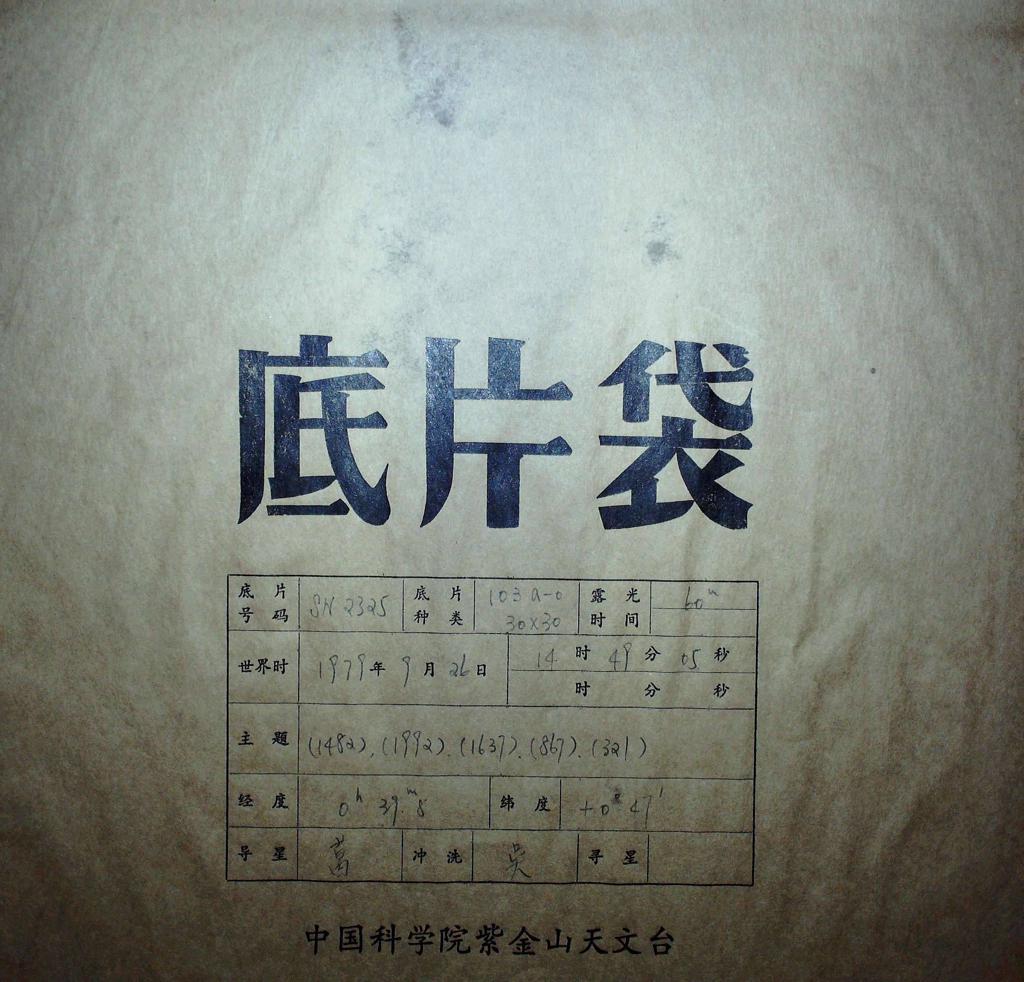 底片袋
底片号码 SN 2325 底片种类 103a-0 30×30 露光时间 60m
世界时 1979年9月26日 14时49分05秒
时 分 秒
主题 (1482).(1992).(1637).(867).(321)
经度 0h 39.m8 纬度 +0° 47'
导星 葛 冲洗 吴 寻星
中国科学院紫金山天文台